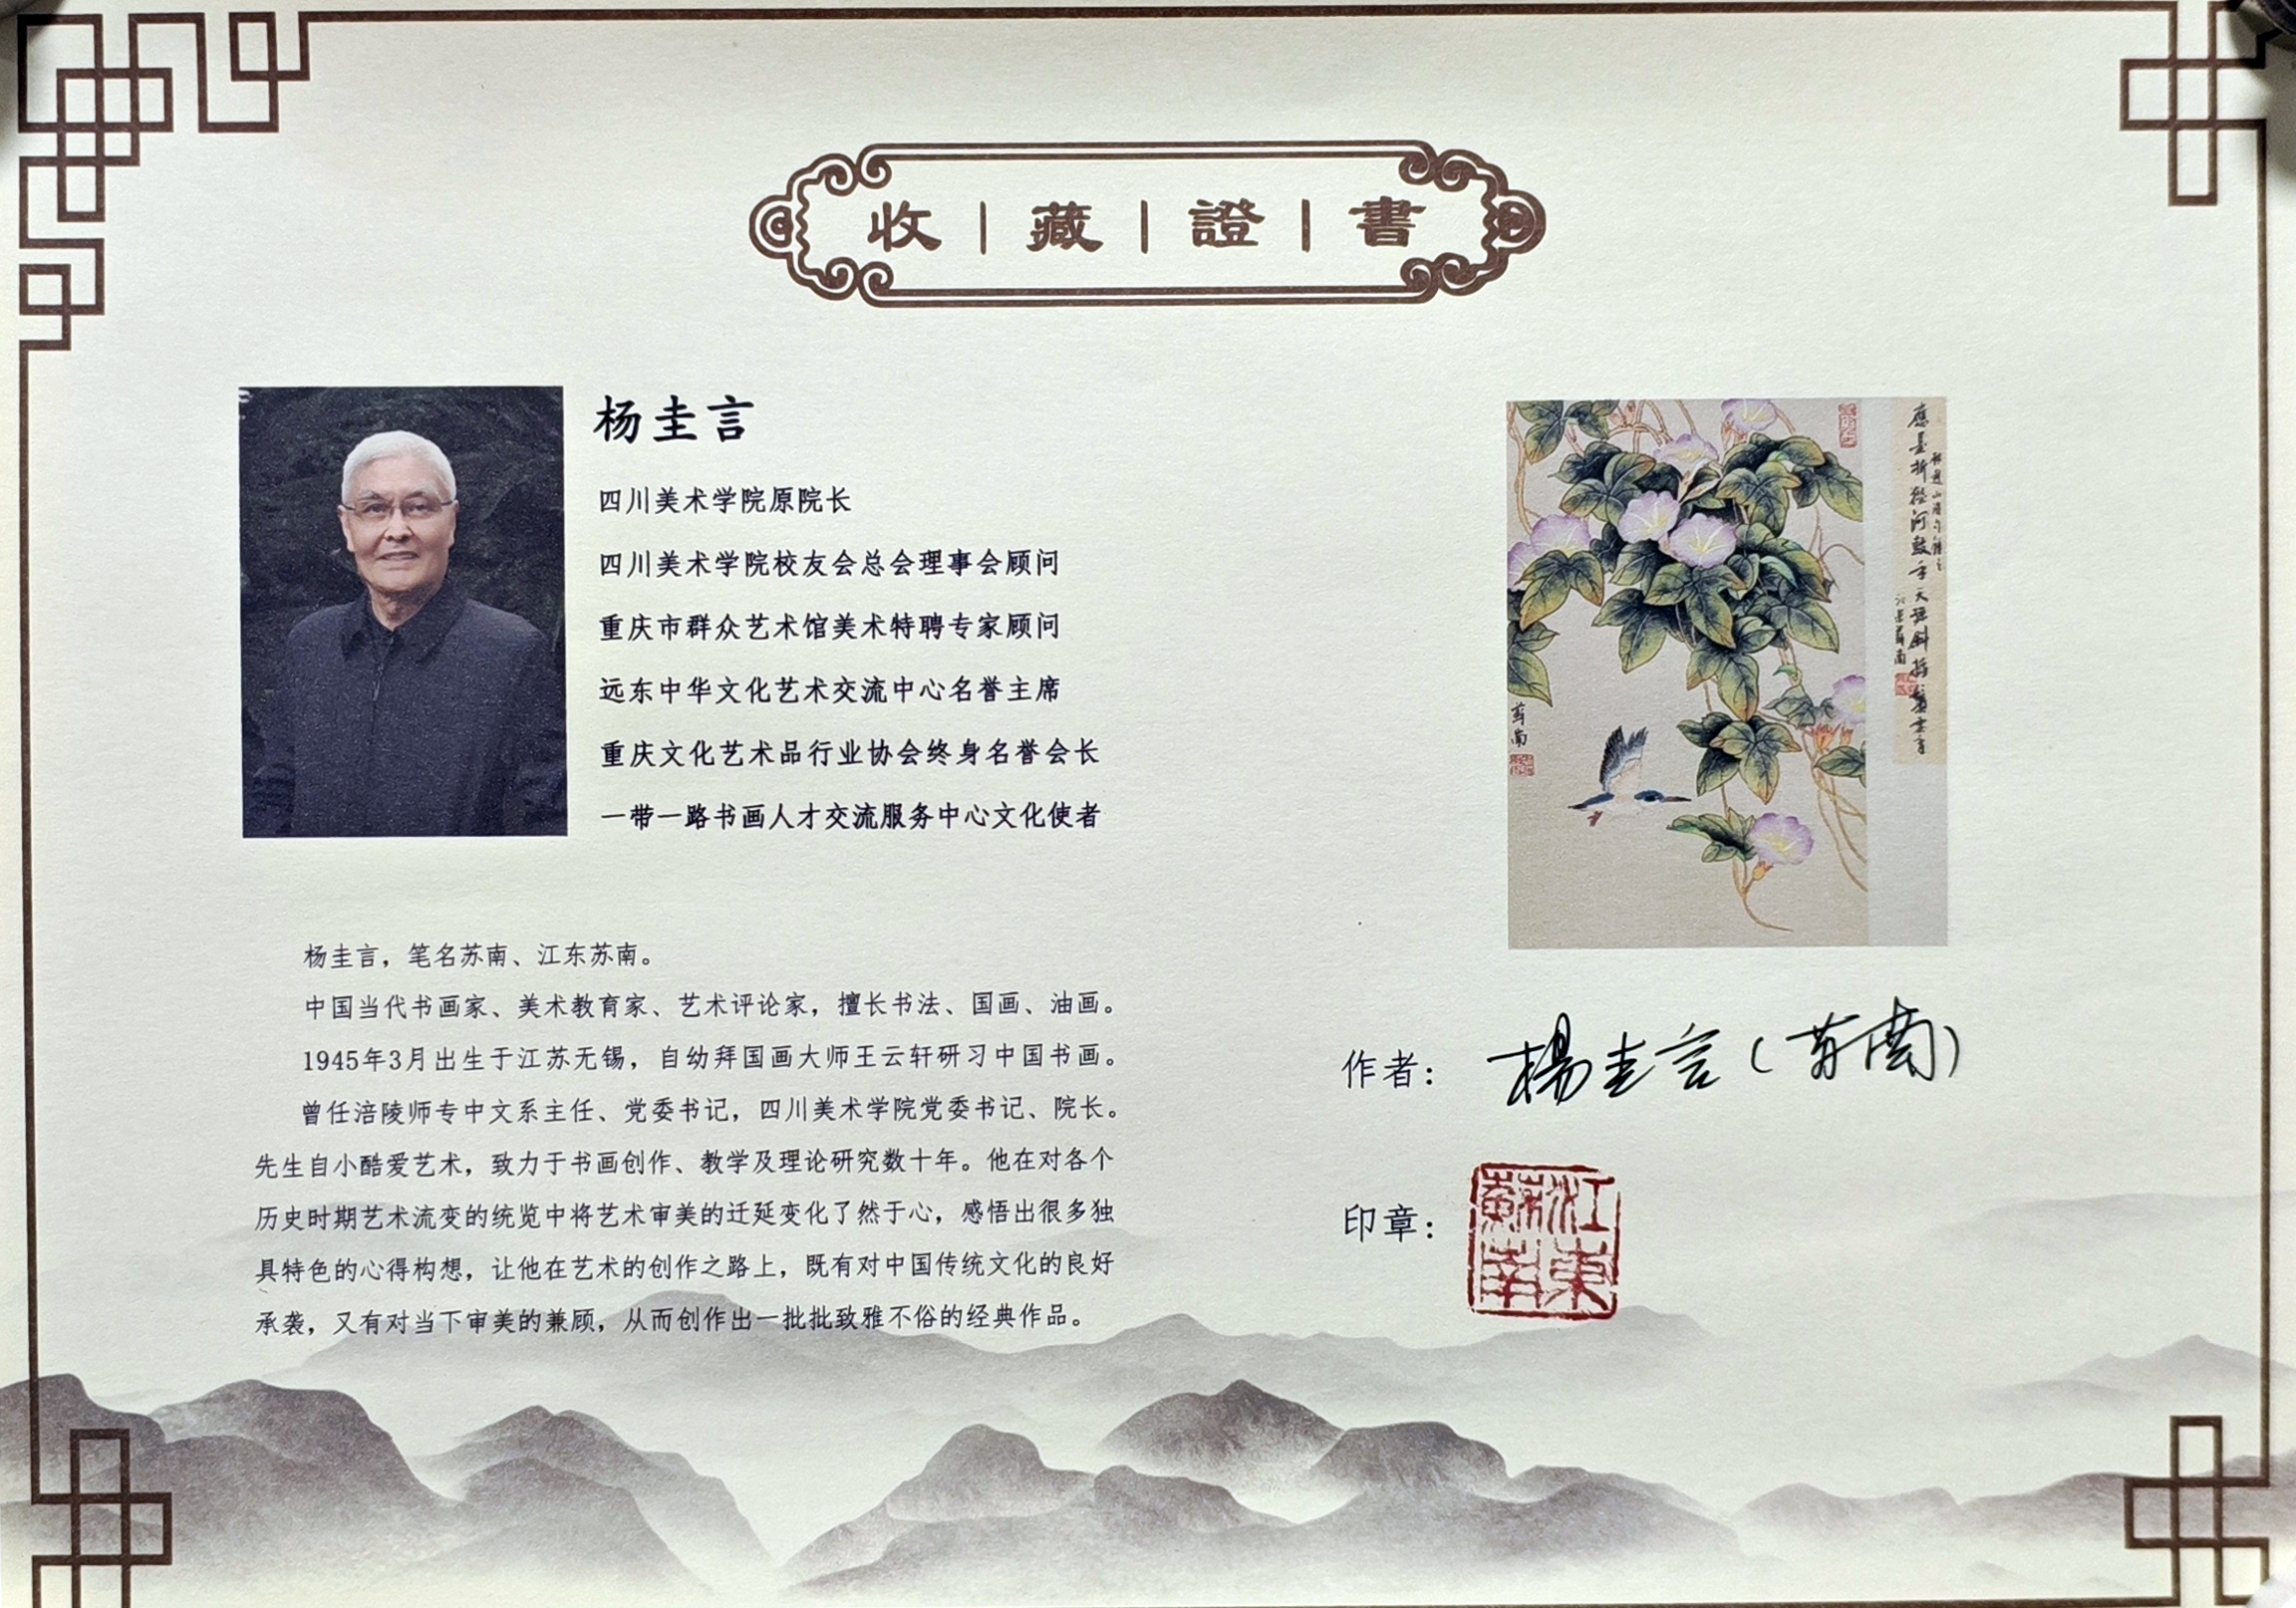 收|藏|證|書
杨圭言
四川美术学院原院长
四川美术学院校友会总会理事会顾问
重庆市群众艺术馆美术特聘专家顾问
远东中华文化艺术交流中心名誉主席
重庆文化艺术品行业协会终身名誉会长
一带一路书画人才交流服务中心文化使者
杨圭言，笔名苏南、江东苏南。
中国当代书画家、美术教育家、艺术评论家，擅长书法、国画、油画。
1945年3月出生于江苏无锡，自幼拜国画大师王云轩研习中国书画。
曾任涪陵师专中文系主任、党委书记，四川美术学院党委书记、院长。
先生自小酷爱艺术，致力于书画创作、教学及理论研究数十年。他在对各个
历史时期艺术流变的统览中将艺术审美的迁延变化了然于心，感悟出很多独
具特色的心得构想，让他在艺术的创作之路上，既有对中国传统文化的良好
承袭，又有对当下审美的兼顾，从而创作出一批批致雅不俗的经典作品。
應是折從河鼓手天孫斜插鬢雲香
作者：楊圭言（苏南）
印章：江東蘇南